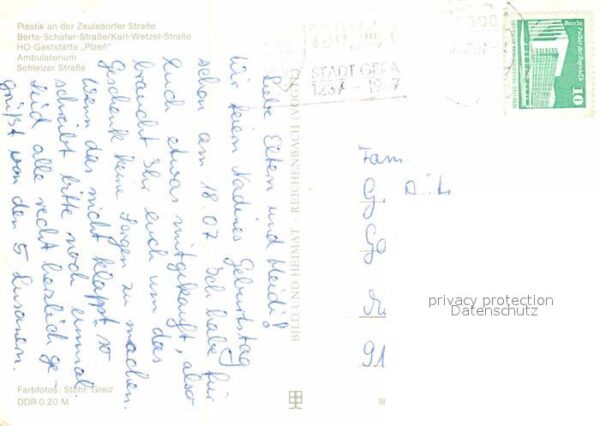 Plastik an der Zeulsdorfer Straße
Berta-Schäfer-Straße/Karl-Wetzel-Straße
HO-Gaststätte „Plzeň"
Ambulatorium
Schleizer Straße
Liebe Eltern und Heidi!
Wir feiern Nadines Geburtstag
schon am 18.07. Ich habe für
Euch etwas mitgekauft, also
braucht Ihr euch um das
Geschenk keine Sorgen zu machen.
Wenn das nicht klappt, so
schreibt bitte noch einmal.
Seid alle recht herzlich ge-
grüßt von den 5
Farbfotos: Stöhr, Greiz
DDR 0,20 M
BILD UND HEIMAT · REICHENBACH (VOGTL)
STADT GERA
1237 - 1987
Berlin
Palast der Republik
10
DDR
Fam.
91
privacy protection
Datenschutz